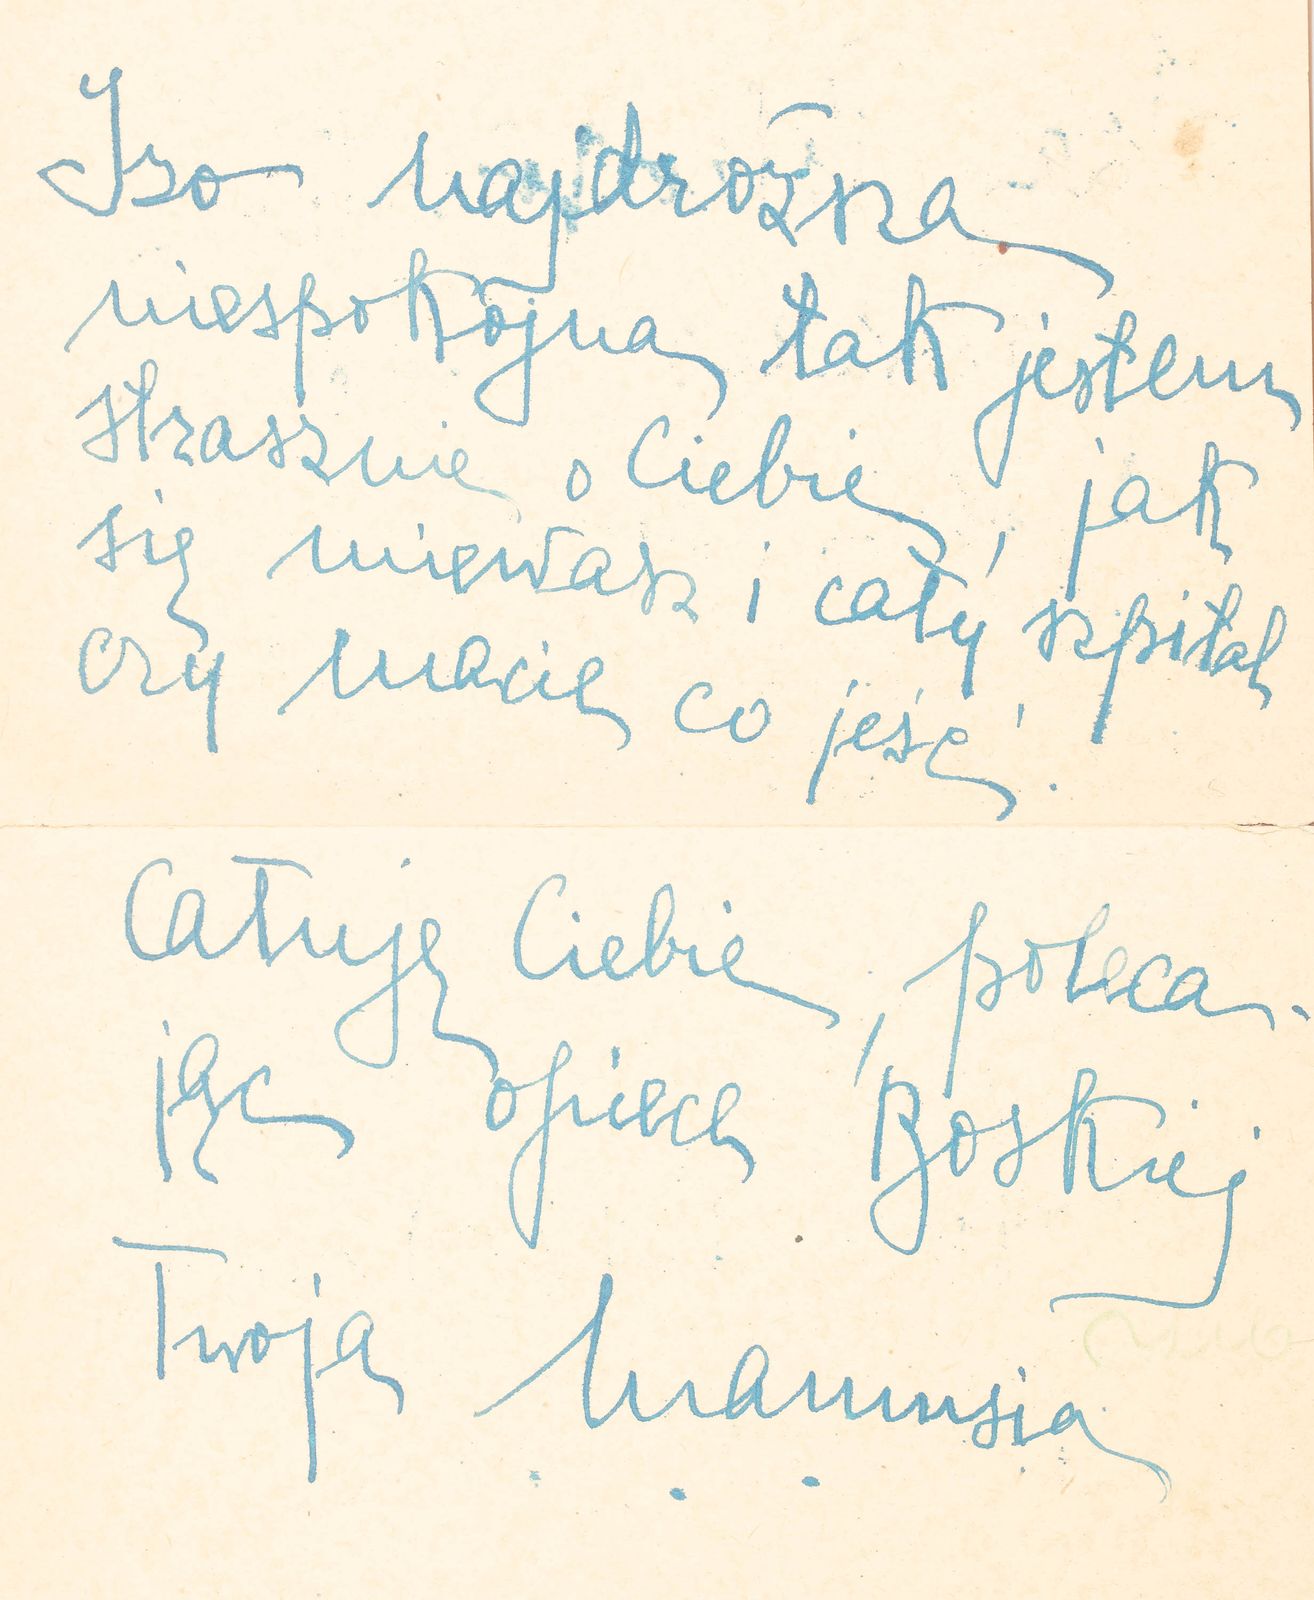 Izo najdroższa
niespokojna tak jestem
strasznie o Ciebie, jak
się miewasz i cały szpital
czy macie co jeść.
Całuję Ciebie, poleca-
jąc opiece Boskiej
Twoja Mamusia